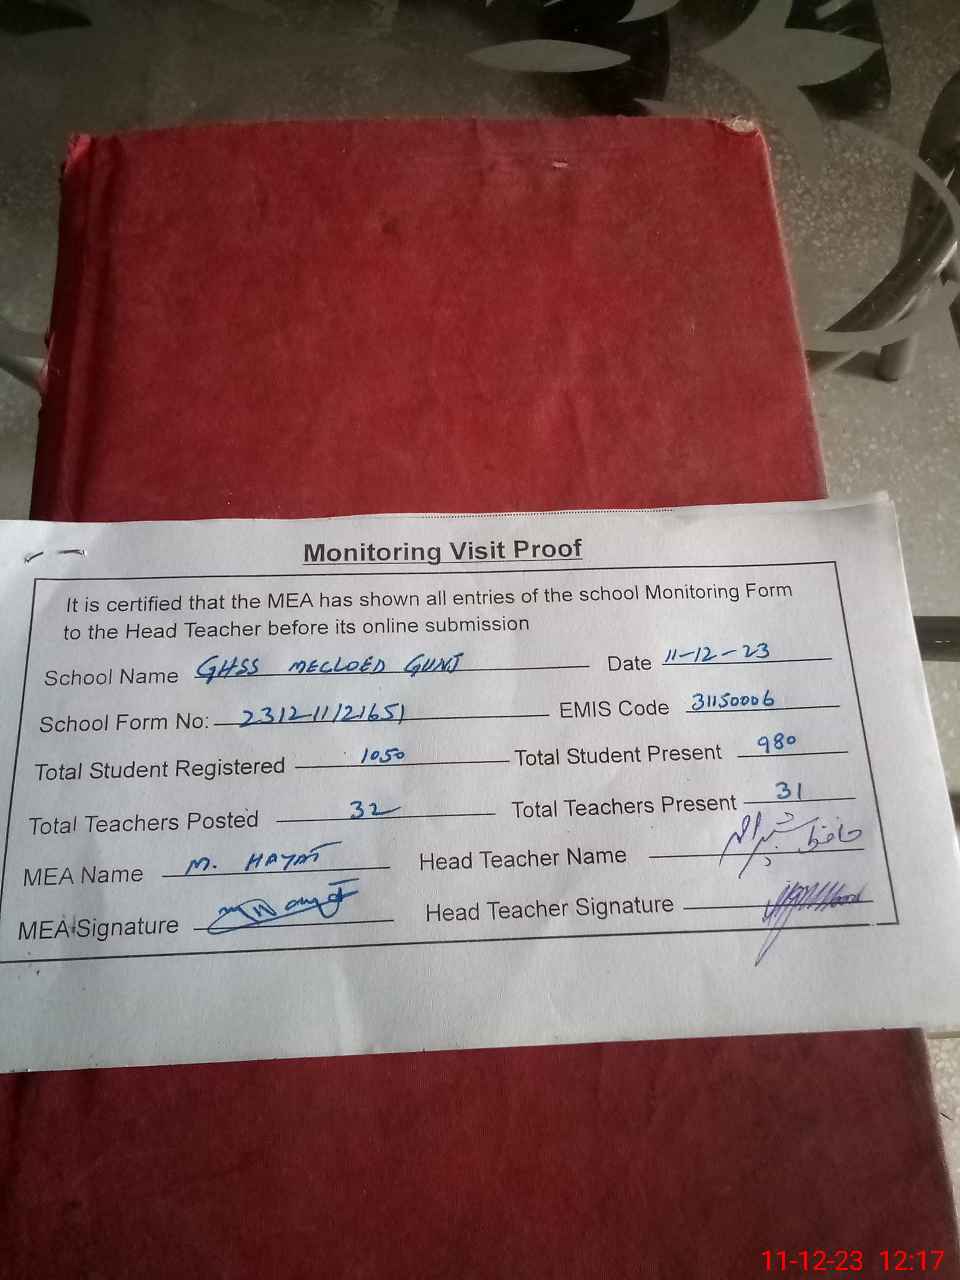 Monitoring Visit Proof
It is certified that the MEA has shown all entries of the school Monitoring Form
to the Head Teacher before its online submission
School Name GHSS MECLOED GUNJ Date 11-12-23
School Form No: 23121121651 EMIS Code 31150006
Total Student Registered 1050 Total Student Present 980
Total Teachers Posted 32 Total Teachers Present 31
MEA Name M. HAYAT Head Teacher Name حافظ
MEA Signature Head Teacher Signature
11-12-23 12:17